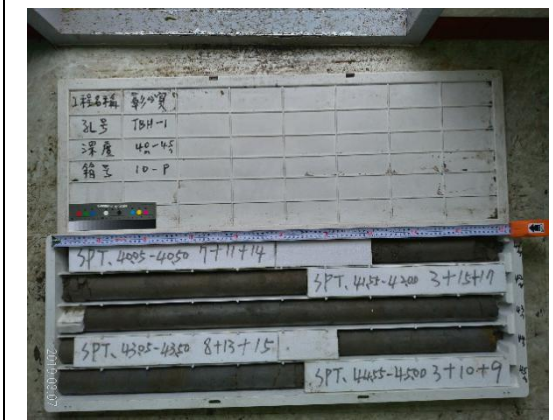 工程名稱 彰
孔号 TBH-1
深度 40-45
箱号 10-P
SPT. 4005-4050 7+11+14
SPT. 4155-4200 3+15+17
SPT. 4305-4350 8+13+15
SPT. 4455-4500 3+10+9
2019.03.07